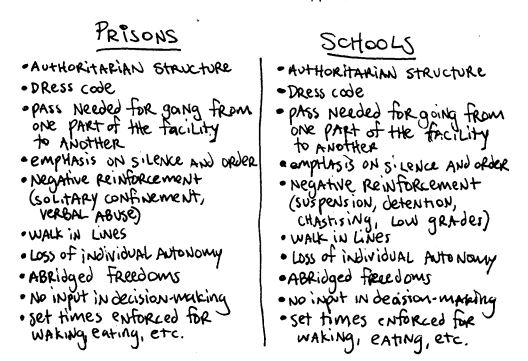 PRISONS
• AUTHORITARIAN STRUCTURE
• DRESS CODE
• PASS NEEDED FOR GOING FROM
ONE PART OF THE FACILITY
TO ANOTHER
• EMPHASIS ON SILENCE AND ORDER
• NEGATIVE REINFORCEMENT
(SOLITARY CONFINEMENT,
VERBAL ABUSE)
• WALK IN LINES
• LOSS OF INDIVIDUAL AUTONOMY
• ABRIDGED FREEDOMS
• NO INPUT IN DECISION-MAKING
• SET TIMES ENFORCED FOR
WAKING, EATING, ETC.
SCHOOLS
• AUTHORITARIAN STRUCTURE
• DRESS CODE
• PASS NEEDED FOR GOING FROM
ONE PART OF THE FACILITY
TO ANOTHER
• EMPHASIS ON SILENCE AND ORDER
• NEGATIVE REINFORCEMENT
(SUSPENSION, DETENTION,
CHASTISING, LOW GRADES)
• WALK IN LINES
• LOSS OF INDIVIDUAL AUTONOMY
• ABRIDGED FREEDOMS
• NO INPUT IN DECISION-MAKING
• SET TIMES ENFORCED FOR
WAKING, EATING, ETC.